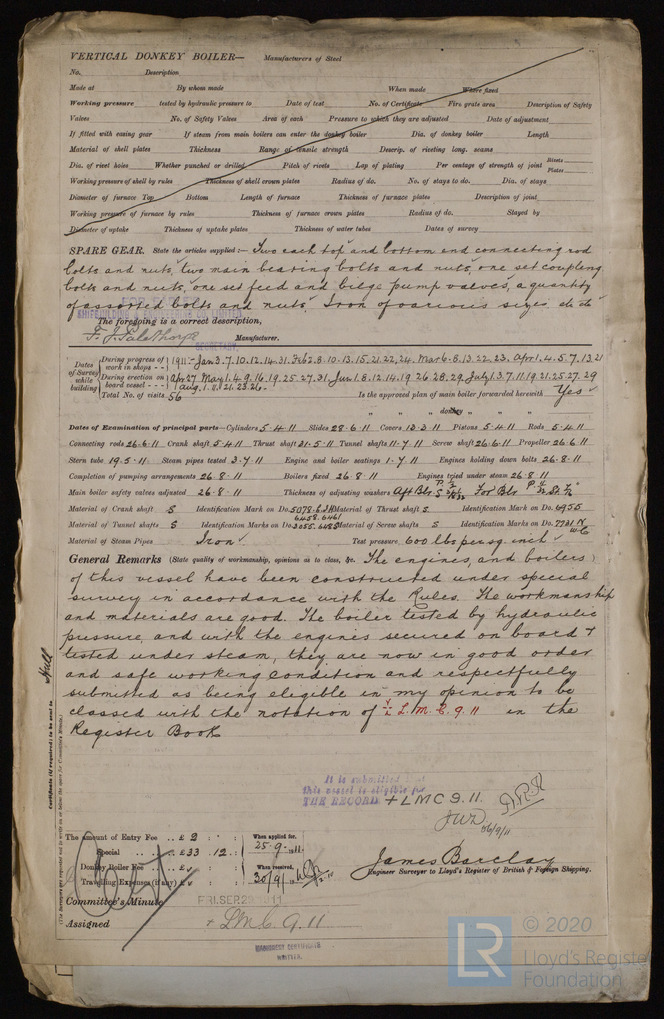 VERTICAL DONKEY BOILER— Manufacturers of Steel
No. Description
Made at By whom made When made Where fixed
Working pressure tested by hydraulic pressure to Date of test No. of Certificate Fire grate area Description of Safety
Valves No. of Safety Valves Area of each Pressure to which they are adjusted Date of adjustment
If fitted with easing gear If steam from main boilers can enter the donkey boiler Dia. of donkey boiler Length
Material of shell plates Thickness Range of tensile strength Descrip. of riveting long. seams
Dia. of rivet holes Whether punched or drilled Pitch of rivets Lap of plating Per centage of strength of joint Rivets Plates
Working pressure of shell by rules Thickness of shell crown plates Radius of do. No. of stays to do. Dia. of stays
Diameter of furnace Top Bottom Length of furnace Thickness of furnace plates Description of joint
Working pressure of furnace by rules Thickness of furnace crown plates Radius of do. Stayed by
Diameter of uptake Thickness of uptake plates Thickness of water tubes Dates of survey
SPARE GEAR. State the articles supplied:— Two each top and bottom end connecting rod
bolts and nuts, two main bearing bolts and nuts, one set coupling
bolts and nuts, one set feed and bilge pump valves, a quantity
of assorted bolts and nuts. Iron of various sizes &c &c
SHIPBUILDING & ENGINEERING CO. LIMITED
The foregoing is a correct description,
Manufacturer.
SECRETARY.
Dates of Survey while building
During progress of work in shops - - 1911:- Jan 3.7.10.12.14.31. Feb 2.8.10.13.15.21.22.24. Mar 6.8.13.22.23. Apr 1.4.5.7.13.21
During erection on board vessel - - - Apr 27 May 1.4.9.16.19.25.27.31 Jun 1.8.12.14.19.26.28.29. July 1.3.7.11.19.21.25.27.29
Aug. 1.11.21.23.26.
Total No. of visits 56 Is the approved plan of main boiler forwarded herewith Yes
" " " donkey " " "
Dates of Examination of principal parts—Cylinders 5.4.11 Slides 28.6.11 Covers 13.3.11 Pistons 5.4.11 Rods 5.4.11
Connecting rods 26.6.11 Crank shaft 5.4.11 Thrust shaft 31.5.11 Tunnel shafts 11.7.11 Screw shaft 26.6.11 Propeller 26.6.11
Stern tube 19.5.11. Steam pipes tested 3.7.11 Engine and boiler seatings 1.7.11 Engines holding down bolts 26.8.11
Completion of pumping arrangements 26.8.11 Boilers fixed 26.8.11 Engines tried under steam 26.8.11
Main boiler safety valves adjusted 26.8.11 Thickness of adjusting washers Aft Blr For Blr
Material of Crank shaft S Identification Mark on Do. Material of Thrust shaft S Identification Mark on Do. 6955
Material of Tunnel shafts S Identification Marks on Do. Material of Screw shafts S Identification Marks on Do. 7731
Material of Steam Pipes Iron Test pressure 600 lbs per sq. inch
General Remarks (State quality of workmanship, opinions as to class, &c. The engines, and boilers
of this vessel have been constructed under special
survey in accordance with the Rules. The workmanship
and materials are good. The boiler tested by hydraulic
pressure, and with the engines secured on board &
tested under steam, they are now in good order
and safe working condition and respectfully
submitted as being eligible in my opinion to be
classed with the notation of L.M.C. 9.11 in the
Register Book
Certificate (if required) to be sent to Hull
(The Surveyors are requested not to write on or below the space for Committee's Minute.)
It is submitted that
this vessel is eligible for
THE RECORD + LMC 9.11.
26/9/11
The amount of Entry Fee .. £ 2 : : When applied for,
Special .. £ 33 . 12 . : 25.9.1911
Donkey Boiler Fee .. £ When received,
Travelling Expenses (if any) £ 30/9/11
James Barclay
Engineer Surveyor to Lloyd's Register of British & Foreign Shipping.
Committee's Minute FRI. SEP 29 1911
Assigned + LMC 9.11
MACHINERY CERTIFICATE
WRITTEN.
LR © 2020
Lloyd's Register
Foundation